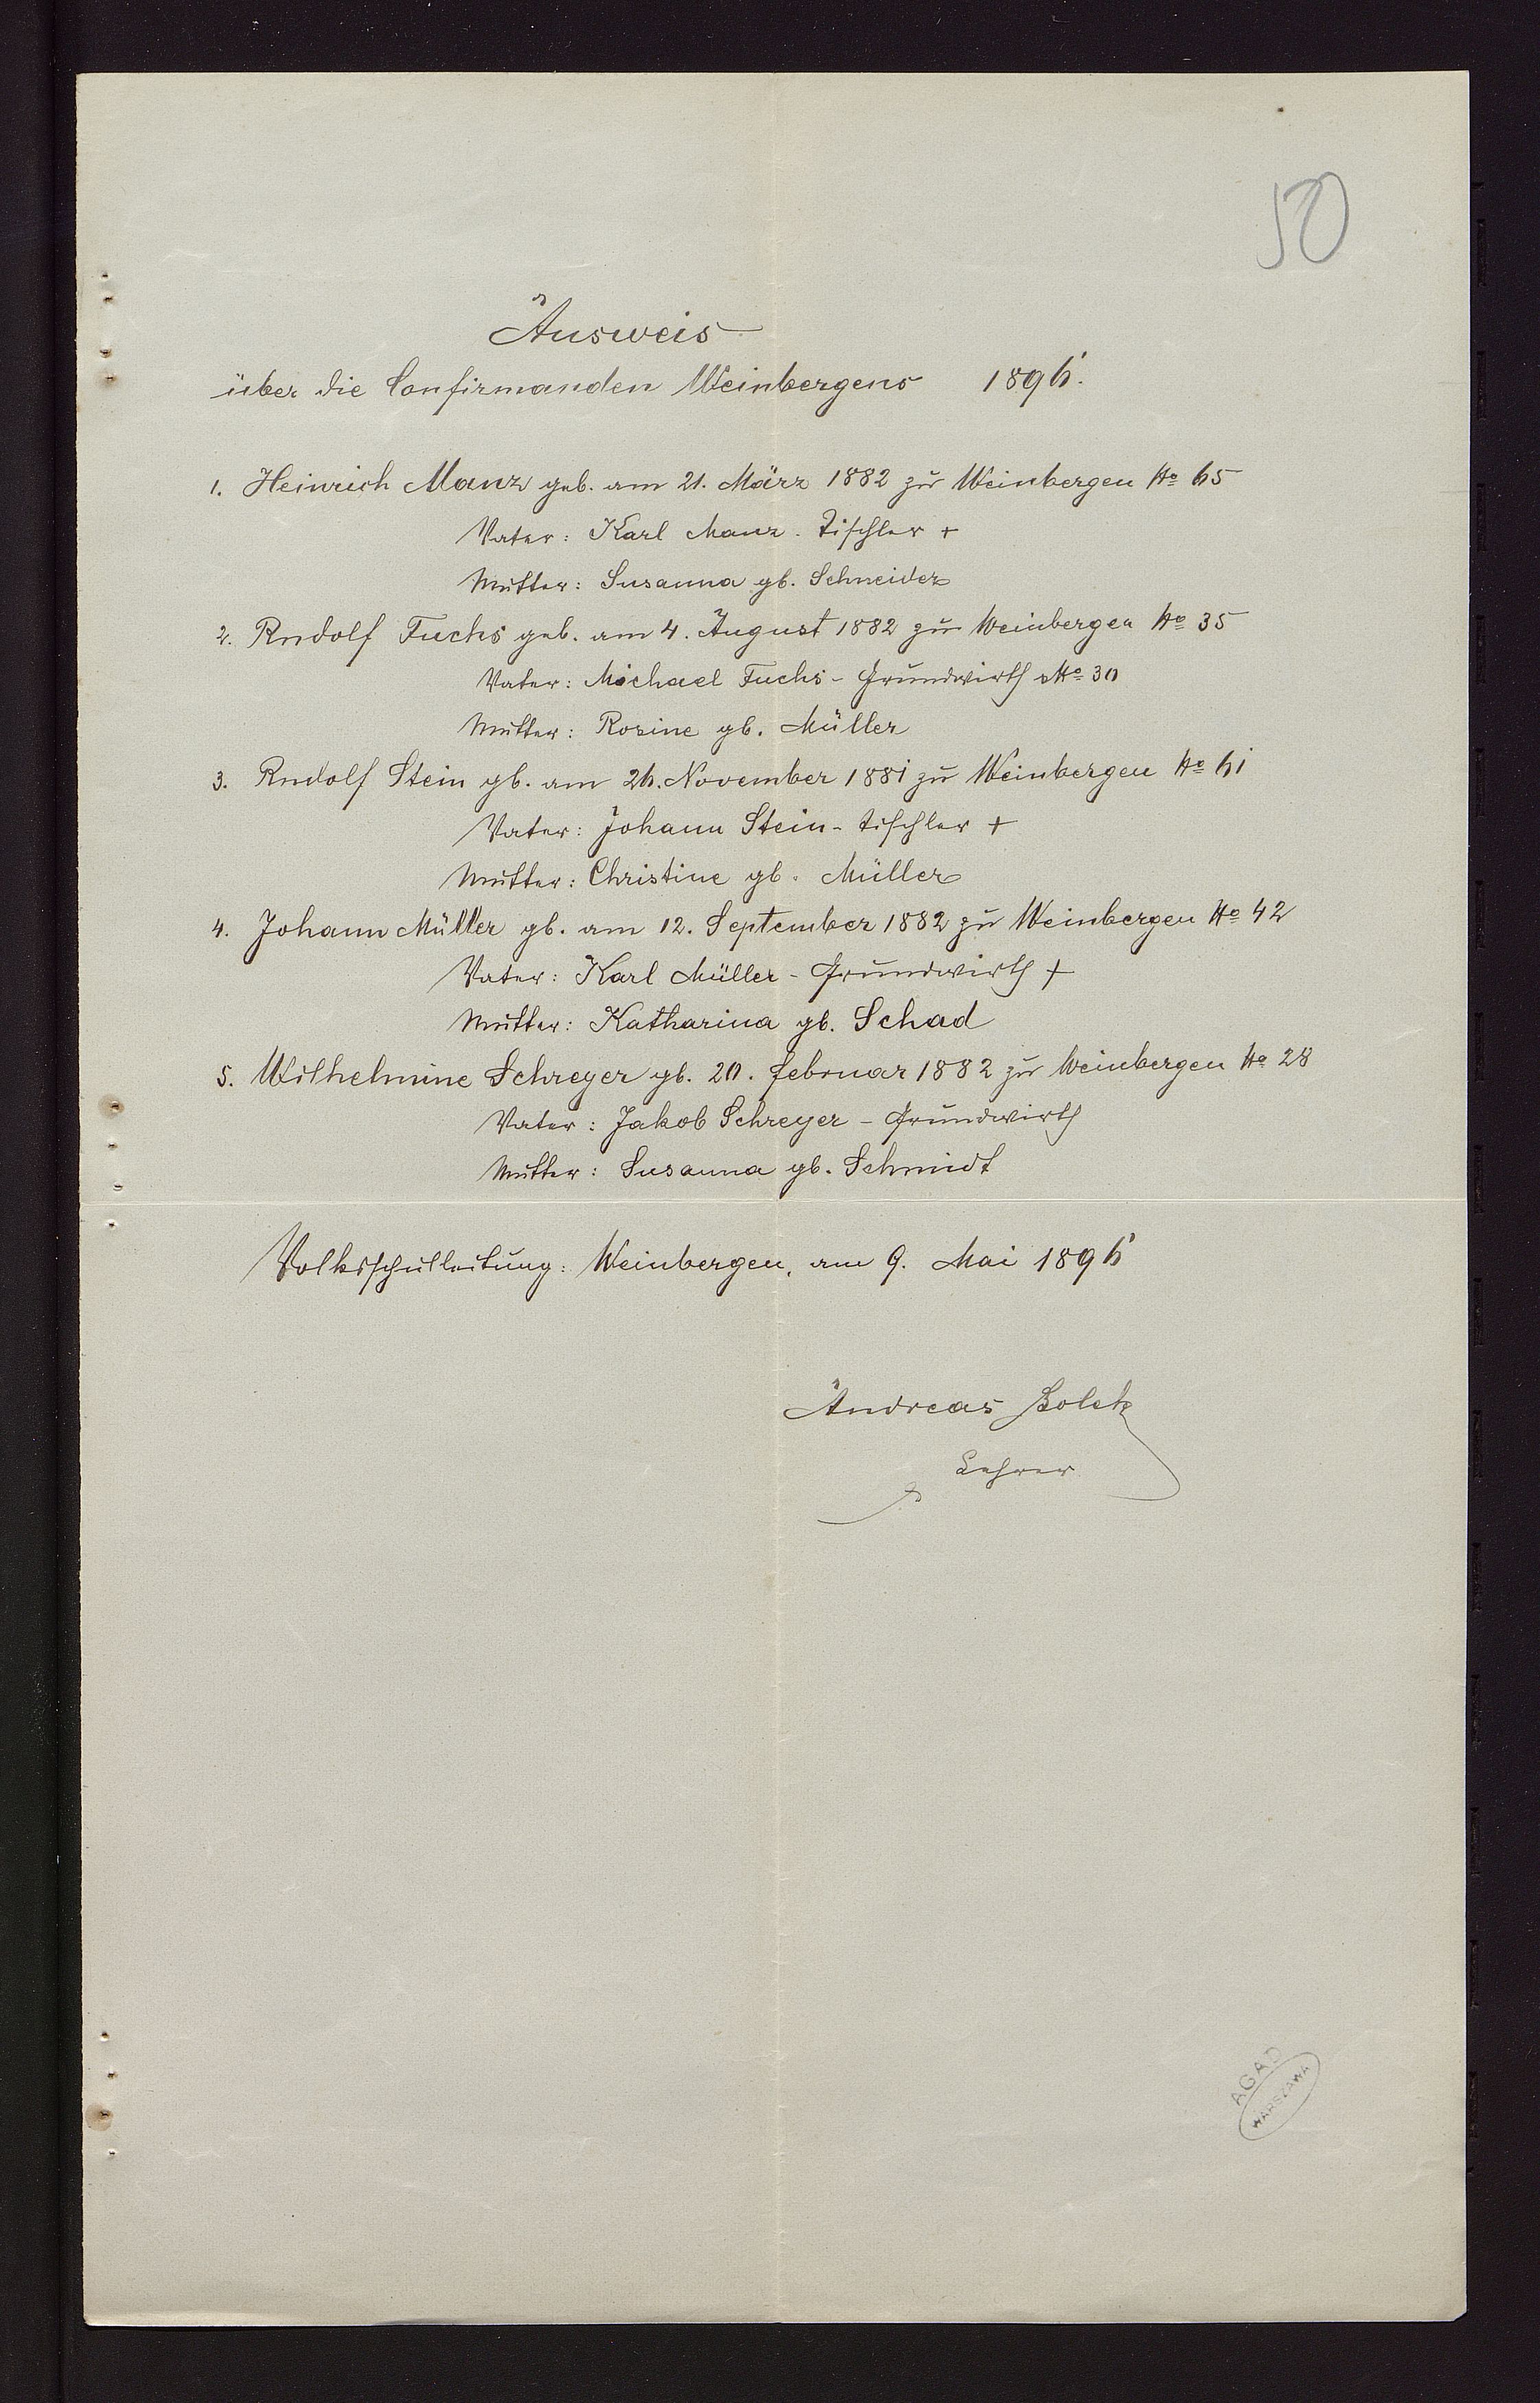 50
Ausweis
über die Confirmanden Weinbergens 1896.
1. Heinrich Manz geb. am 21. März 1882 zu Weinbergen No 65
Vater: Karl Manz - Tischler +
Mutter: Susanna gb. Schneider
2. Rudolf Fuchs geb. am 4. August 1882 zu Weinbergen No 35
Vater: Michael Fuchs - Grundwirth No 30
Mutter: Rosine gb. Müller
3. Rudolf Stein gb. am 26. November 1881 zu Weinbergen No 61
Vater: Johann Stein - Tischler +
Mutter: Christine gb. Müller
4. Johann Müller gb. am 12. September 1882 zu Weinbergen No 42
Vater: Karl Müller - Grundwirth +
Mutter: Katharina gb. Schad
5. Wilhelmine Schreyer gb. 20. Februar 1882 zu Weinbergen No 28
Vater: Jakob Schreyer - Grundwirth
Mutter: Susanna gb. Schmidt
Volksschulleitung: Weinbergen, am 9. Mai 1896
Andreas Bolek
Lehrer
AGAD
WARSZAWA